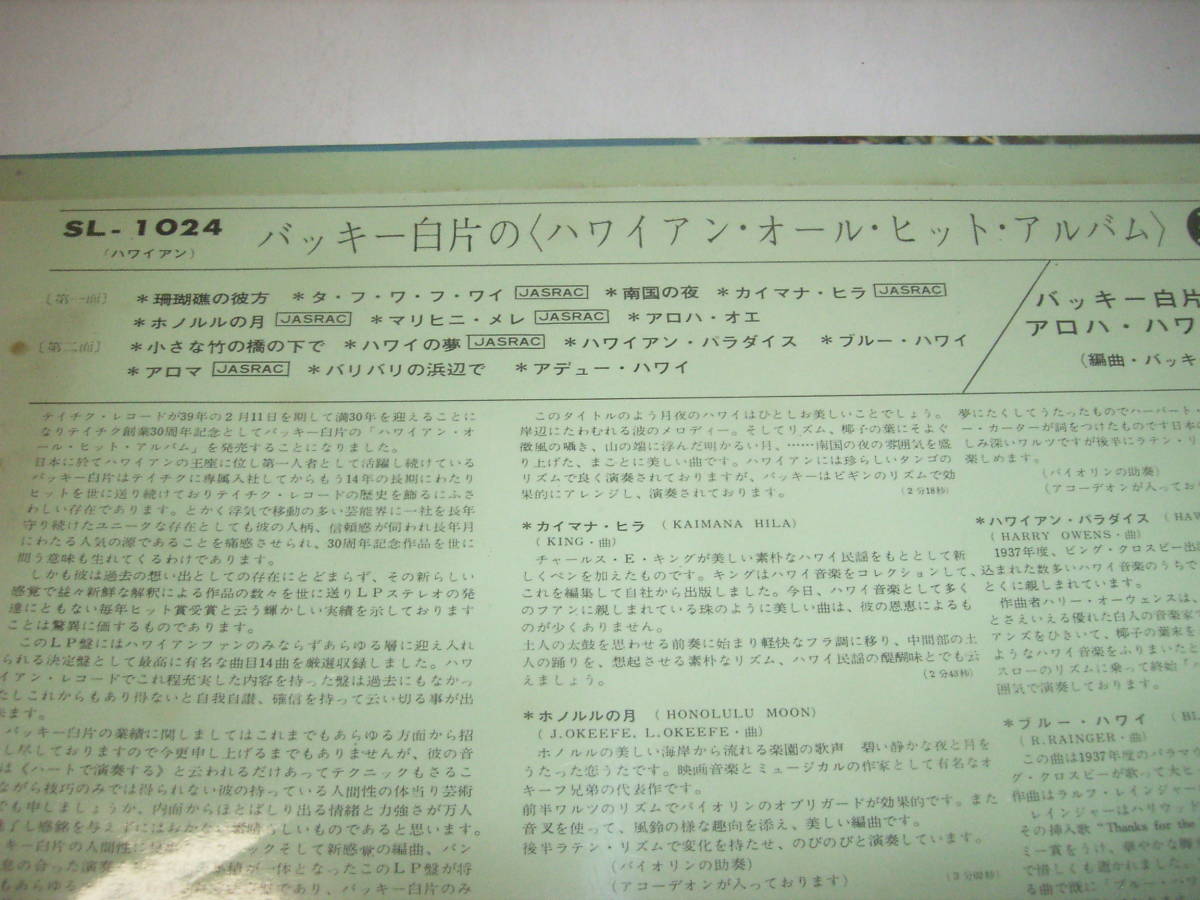 SL-1024
(ハワイアン)
バッキー白片の〈ハワイアン・オール・ヒット・アルバム〉
〔第一面〕 *珊瑚礁の彼方 *タ・フ・ワ・フ・ワイ JASRAC *南国の夜 *カイマナ・ヒラ JASRAC
*ホノルルの月 JASRAC *マリヒニ・メレ JASRAC *アロハ・オエ
〔第二面〕 *小さな竹の橋の下で *ハワイの夢 JASRAC *ハワイアン・パラダイス *ブルー・ハワイ
*アロマ JASRAC *バリバリの浜辺で *アデュー・ハワイ
バッキー白片
アロハ・ハワ
(編曲・バッキ
テイチク・レコードが39年の2月11日を期して満30年を迎えることに
なりテイチク創業30周年記念としてバッキー白片の「ハワイアン・オ
ール・ヒット・アルバム」を発売することになりました。
日本に於てハワイアンの王座に位し第一人者として活躍し続けている
バッキー白片はテイチクに専属入社してからもう14年の長期にわたり
ヒットを世に送り続けておりテイチク・レコードの歴史を飾るにふさ
わしい存在であります。とかく浮気で移動の多い芸能界に一社を長年
守り続けたユニークな存在としても彼の人柄、信頼感が伺われ長年月
にわたる人気の源であることを痛感させられ、30周年記念作品を世に
問う意味も生れてくるわけであります。
しかも彼は過去の想い出としての存在にとどまらず、その新らしい
感覚で益々新鮮な解釈による作品の数々を世に送りLPステレオの発
達にともない毎年ヒット賞受賞と云う輝かしい実績を示しております
ことは驚異に価するものであります。
このLP盤にはハワイアンファンのみならずあらゆる層に迎え入れ
られる決定盤として最高に有名な曲目14曲を厳選収録しました。ハワ
イアン・レコードでこれ程充実した内容を持った盤は過去にもなかっ
たしこれからもあり得ないと自我自讃、確信を持って云い切る事が出
来ます。
バッキー白片の業績に関しましてはこれまでもあらゆる方面から招
し尽しておりますので今更申し上げるまでもありませんが、彼の音
は《ハートで演奏する》と云われるだけあってテクニックもさるこ
ながら技巧のみでは得られない彼の持っている人間性の体当り芸術
でも申しましょうか、内面からほとばしり出る情緒と力強さが万人
魅了し感銘を与えずにはおかない素晴らしいものであると思います。
キー白片の人間性に
ックそして新感覚の編曲、バン
息の合った演奏
が一体となったこのLP盤が将
もあらゆる
盤であり、バッキー白片のみ
このタイトルのよう月夜のハワイはひとしお美しいことでしょう。
岸辺にたわむれる波のメロディー。そしてリズム、椰子の葉にそよぐ
微風の囁き、山の端に浮んだ明かるい月、……南国の夜の雰囲気を盛
り上げた、まことに美しい曲です。ハワイアンには珍らしいタンゴの
リズムで良く演奏されておりますが、バッキーはビギンのリズムで効
果的にアレンジし、演奏されております。
(2分18秒)
*カイマナ・ヒラ (KAIMANA HILA)
(KING・曲)
チャールス・E・キングが美しい素朴なハワイ民謡をもととして新
しくペンを加えたものです。キングはハワイ音楽をコレクションして、
これを編集して自社から出版しました。今日、ハワイ音楽として多く
のファンに親しまれている珠のように美しい曲は、彼の恩恵によるも
のが少くありません。
土人の太鼓を思わせる前奏に始まり軽快なフラ調に移り、中間部の土
人の踊りを、想起させる素朴なリズム、ハワイ民謡の醍醐味とでも云
えましょう。
(2分43秒)
*ホノルルの月 (HONOLULU MOON)
(J.OKEEFE、L.OKEEFE・曲)
ホノルルの美しい海岸から流れる楽園の歌声 碧い静かな夜と月を
うたった恋うたです。映画音楽とミュージカルの作家として有名なオ
キーフ兄弟の代表作です。
前半ワルツのリズムでバイオリンのオブリガードが効果的です。また
音叉を使って、風鈴の様な趣向を添え、美しい編曲です。
後半ラテン・リズムで変化を持たせ、のびのびと演奏しています。
(バイオリンの助奏)
(アコーデオンが入っております)
夢にたくしてうたったものでハーバート・
ー・カーターが詞をつけたものです日本の
しみ深いワルツですが後半にラテン・リ
楽しめます。
(バイオリンの助奏)
(アコーデオンが入ってお
*ハワイアン・パラダイス (HAW
(HARRY OWENS・曲)
1937年度、ビング・クロスビー出
込まれた数多いハワイ音楽のうちで
とくに親しまれています。
作曲者ハリー・オーウェンスは、
とさえいえる優れた白人の音楽家
アンズをひきいて、椰子の葉末を
ようなハワイ音楽をふりまいたと
スローのリズムに乗って終始
囲気で演奏しております。
*ブルー・ハワイ (BL
(R.RAINGER・曲)
この曲は1937年度のパラマウ
グ・クロスビーが歌って大ヒ
作曲はラルフ・レインジャー
レインジャーはハリウッド
その挿入歌“Thanks for the
ミー賞をうけ、華やかな脚
で惜しくも逝かれました。
る曲で既に「ブルー・ハワ